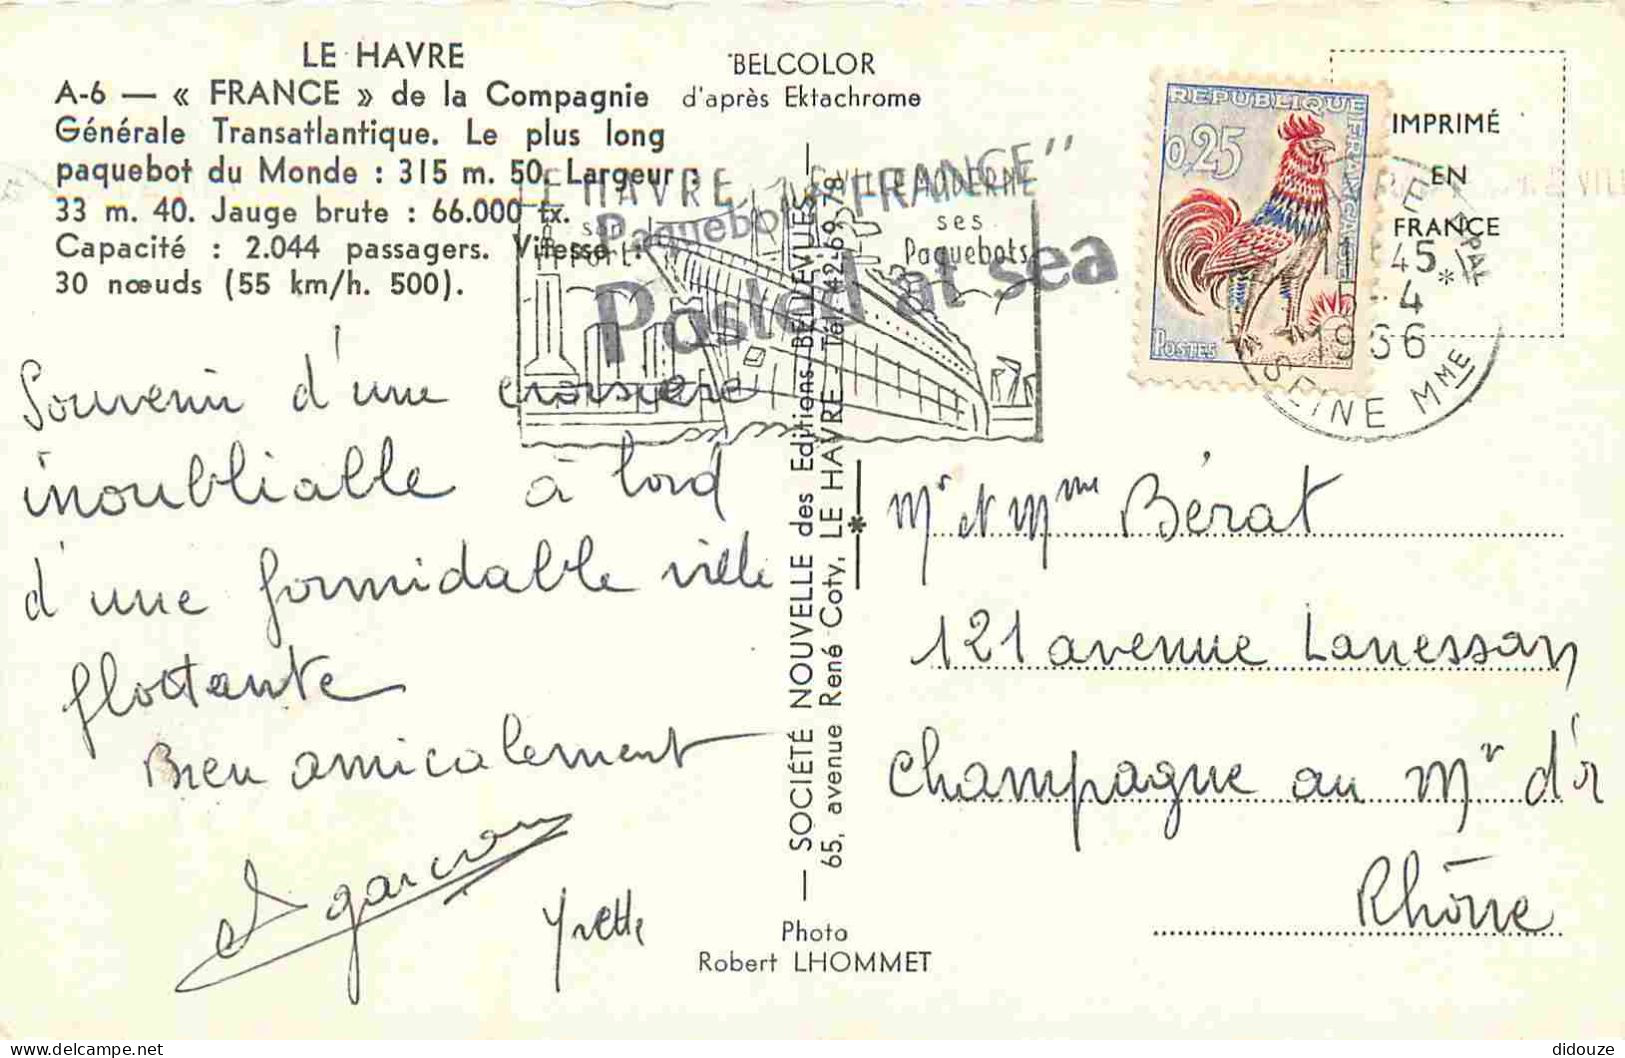 LE HAVRE
A-6 — « FRANCE » de la Compagnie
Générale Transatlantique. Le plus long
paquebot du Monde : 315 m. 50. Largeur :
33 m. 40. Jauge brute : 66.000 tx.
Capacité : 2.044 passagers. Vitesse :
30 nœuds (55 km/h. 500).
BELCOLOR
d'après Ektachrome
LE HAVRE, VILLE MODERNE
son
Port
ses
Paquebots
Paquebot "FRANCE"
Posted at sea
REPUBLIQUE FRANÇAISE
0,25
POSTES
IMPRIMÉ
EN
FRANCE
45
4
1966
SEINE MME
Souvenir d'une croisière
inoubliable à bord
d'une formidable ville
flottante
Bien amicalement
Yvette
— SOCIÉTÉ NOUVELLE des Editions BELLEVUES —
65, avenue René Coty, LE HAVRE - Tél. 42-69-78
Photo
Robert LHOMMET
Mr et Mme Bérat
121 avenue Lanessan
Champagne au Mt d'or
Rhône
delcampe.net
didouze